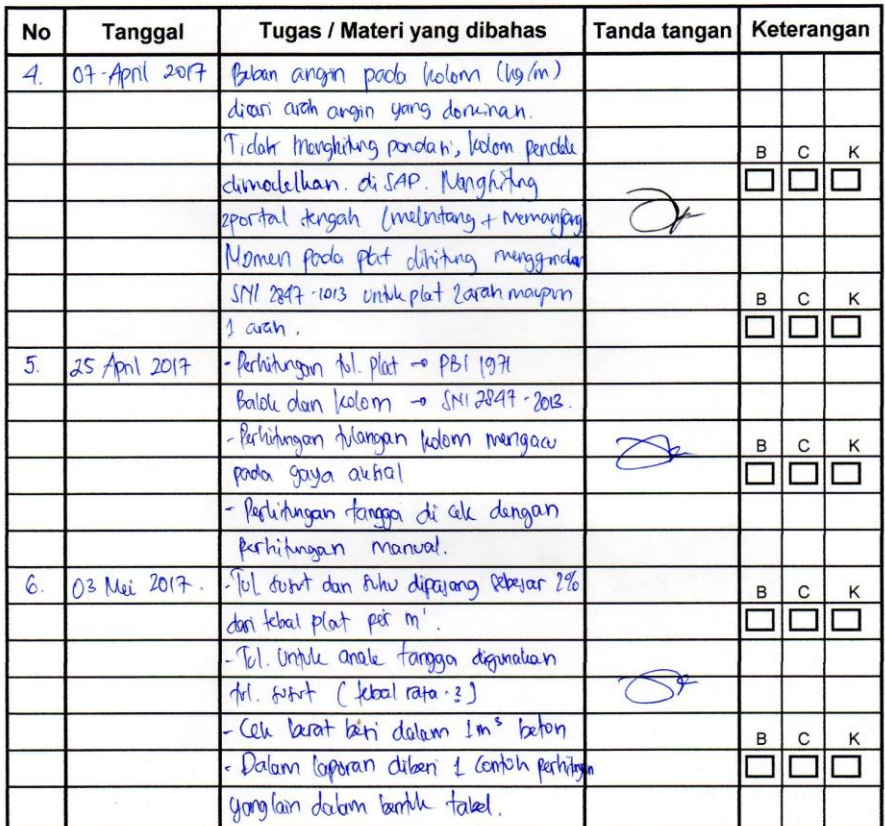 No Tanggal Tugas / Materi yang dibahas Tanda tangan Keterangan
4. 07-April 2017 Beban angin pada kolom (kg/m)
dicari arah angin yang dominan.
Tidak menghitung pondasi, kolom pendek
B C K
dimodelkan di SAP. Menghitung
2portal tengah (melintang + memanjang
Momen pada plat dihitung menggunakan
SNI 2847-1013 untuk plat 2arah maupun
B C K
1 arah.
5. 25 April 2017 - Perhitungan tul. plat → PBI 1971
Balok dan kolom → SNI 2847-2013.
- Perhitungan tulangan kolom mengacu
B C K
pada gaya aksial
- Perhitungan tangga di cek dengan
perhitungan manual.
6. 03 Mei 2017. - Tul. susut dan suhu dipasang sebesar 2%
B C K
dari tebal plat per m'.
- Tul. untuk anak tangga digunakan
tul. susut (tebal rata-2)
- Cek berat besi dalam 1m³ beton
B C K
- Dalam laporan diberi 1 contoh perhitungan
yang lain dalam bentuk tabel.